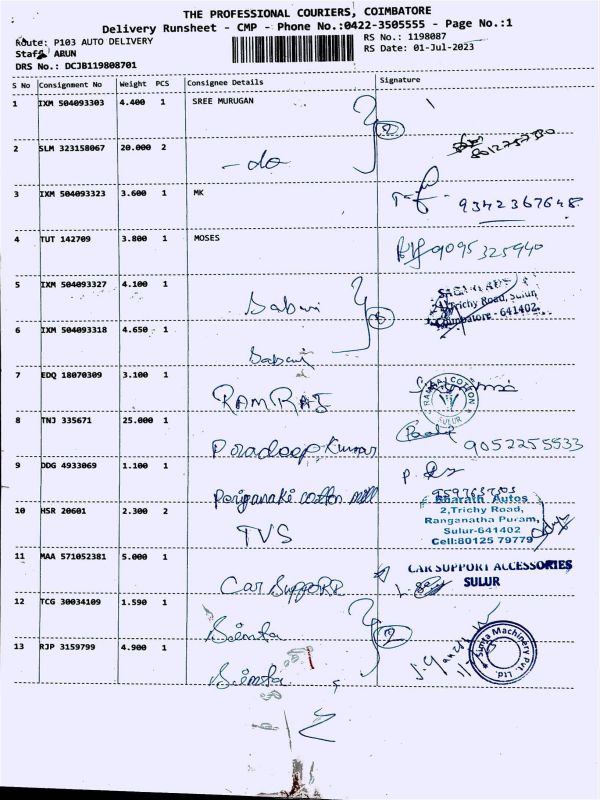 THE PROFESSIONAL COURIERS, COIMBATORE
Delivery Runsheet - CMP - Phone No.:0422-3505555 - Page No.:1
Route: P103 AUTO DELIVERY
RS No.: 1198087
Staff: ARUN
RS Date: 01-Jul-2023
DRS No.: DCJB119808701
S No Consignment No Weight PCS Consignee Details Signature
1 IXM 504093303 4.400 1 SREE MURUGAN
2 SLM 323158067 20.000 2 - do
3 IXM 504093323 3.600 1 MK 9342367648
4 TUT 142709 3.800 1 MOSES 9095325940
5 IXM 504093327 4.100 1 Sabari
Trichy Road, Sulur
Coimbatore - 641402
6 IXM 504093318 4.650 1 Sabari
7 EDQ 18070309 3.100 1 RAMRAJ
RAMRAJ COTTON
SULUR
8 TNJ 335671 25.000 1 Poradeep Kumar 9052255533
9 DDG 4933069 1.100 1 cotton mill
10 HSR 20601 2.300 2 TVS
Bharath Autos
2,Trichy Road,
Ranganatha Puram,
Sulur-641402
Cell:80125 79779
11 MAA 571052381 5.000 1 Car Support
CAR SUPPORT ACCESSORIES
SULUR
12 TCG 30034109 1.590 1 Simta
13 RJP 3159799 4.900 1 Simta
Simta Machinery Pvt. Ltd.